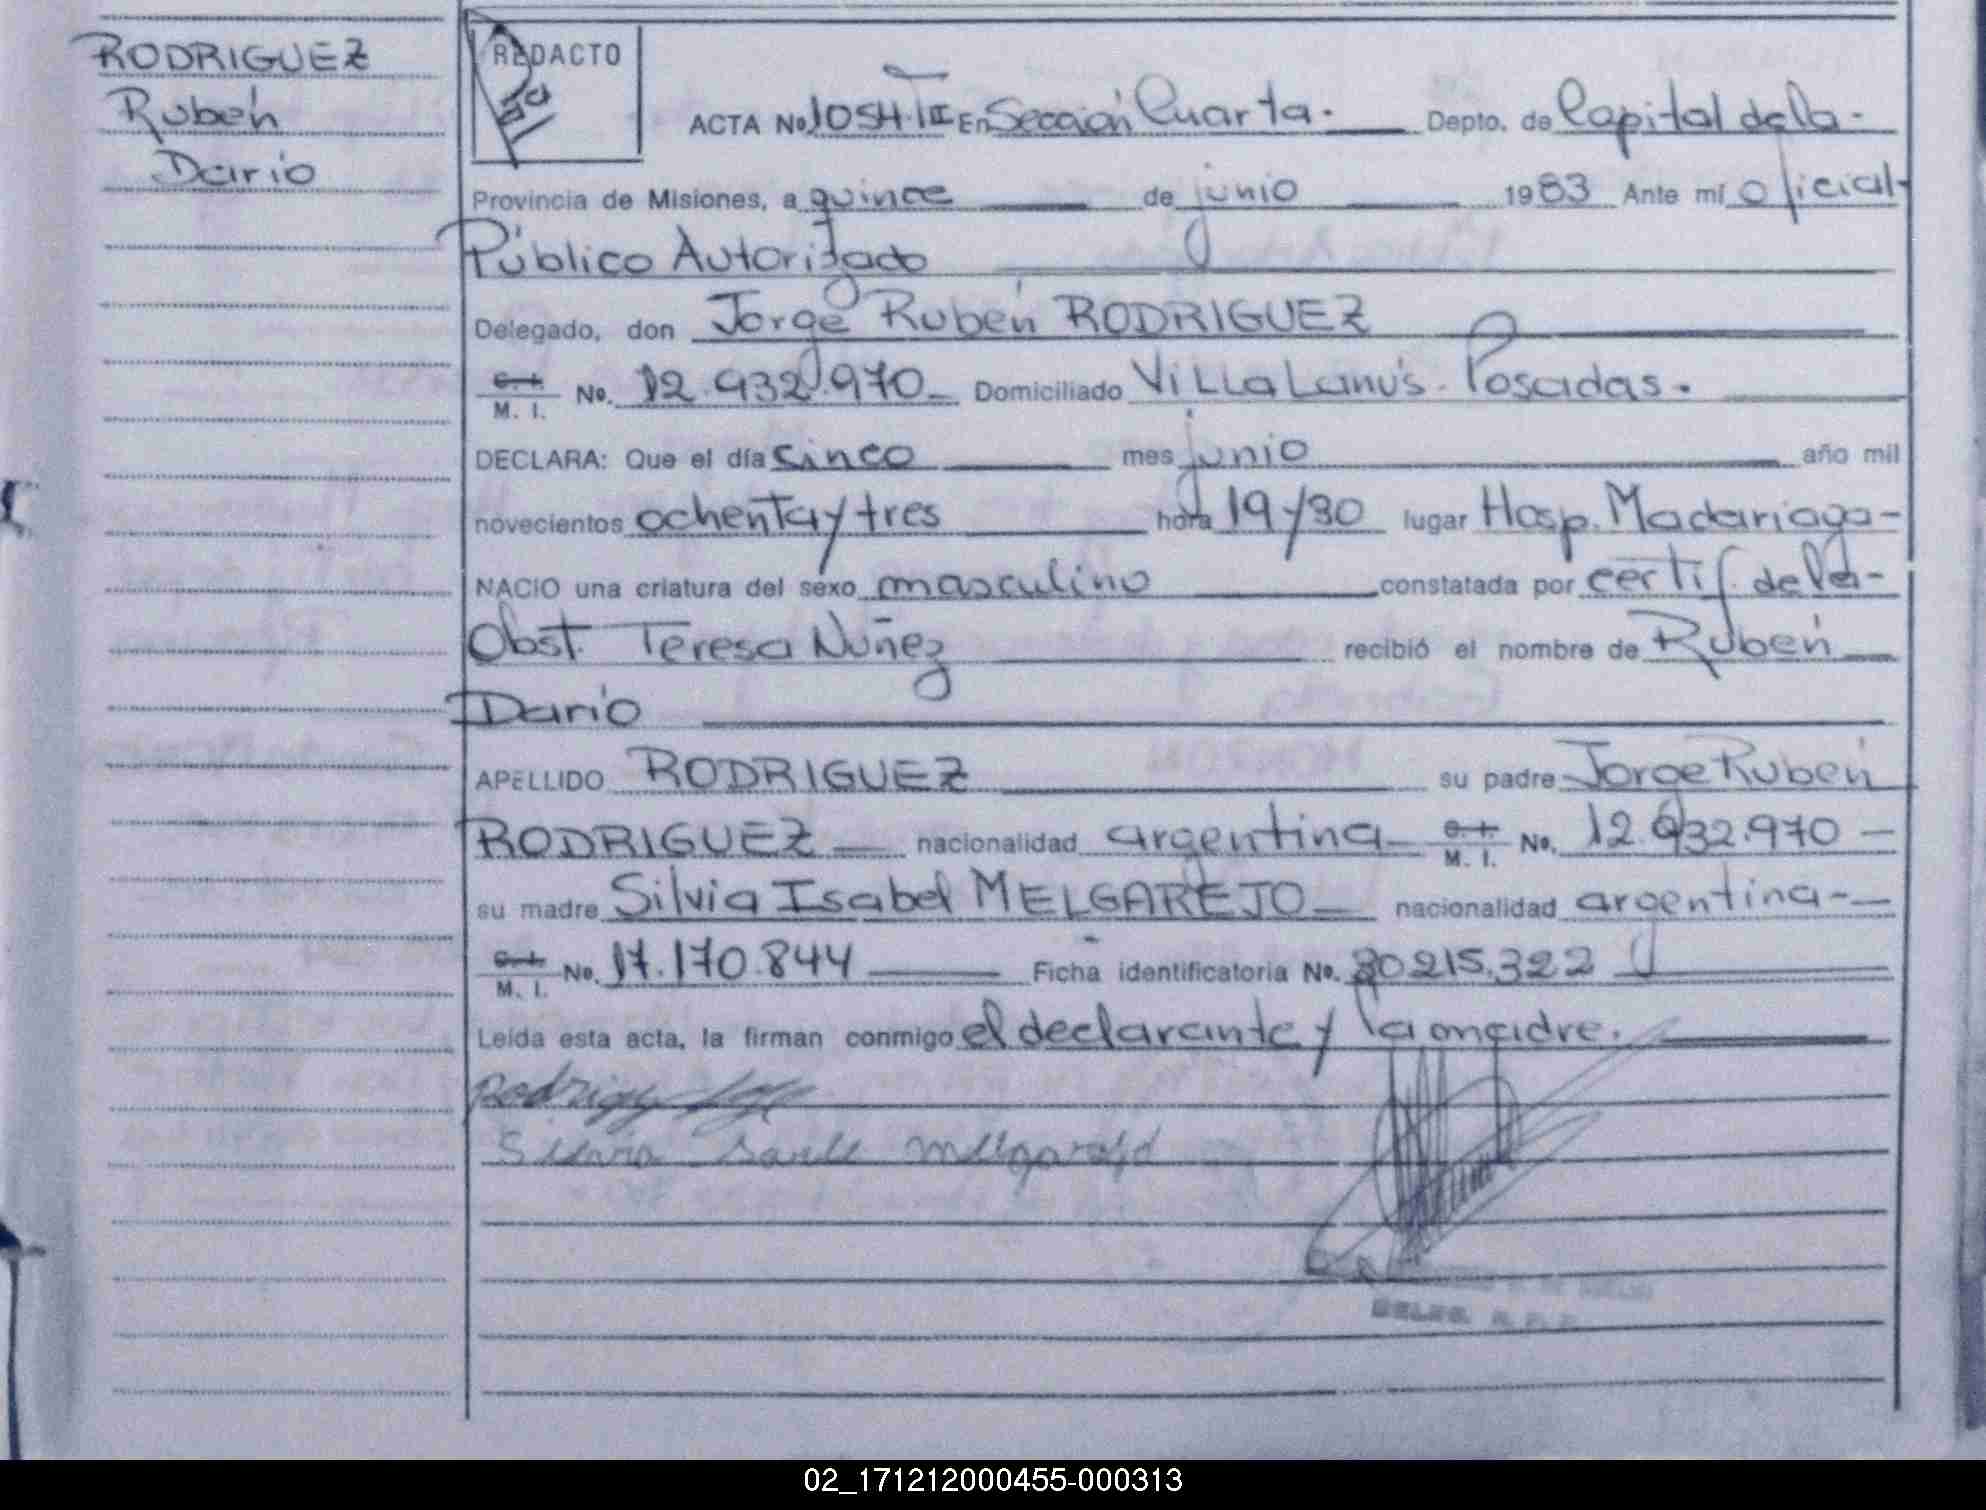 RODRIGUEZ
Rubén
Dario
REDACTO
ACTA No 1054·T III En Sección Cuarta. Depto. de Capital de la -
Provincia de Misiones, a quince de junio 1983 Ante mí oficial
Público Autorizado
Delegado, don Jorge Rubén RODRIGUEZ
C. I. M. I. No. 12.932.970 Domiciliado Villa Lanús. Posadas.
DECLARA: Que el día sinco mes junio año mil
novecientos ochenta y tres hora 19 y 30 lugar Hosp. Madariaga -
NACIO una criatura del sexo masculino constatada por certif. de la -
Obst. Teresa Nuñez recibió el nombre de Rubén
Dario
APELLIDO RODRIGUEZ su padre Jorge Rubén
RODRIGUEZ nacionalidad argentina C. I. M. I. No. 12.932.970 -
su madre Silvia Isabel MELGAREJO nacionalidad argentina -
C. I. M. I. No. 17.170.844 Ficha identificatoria No. 30215.322
Leída esta acta, la firman conmigo el declarante y la madre.
Rodriguez Jorge
Silvia Isabel Melgarejo
DELEG. R. P. P.
02_171212000455-000313